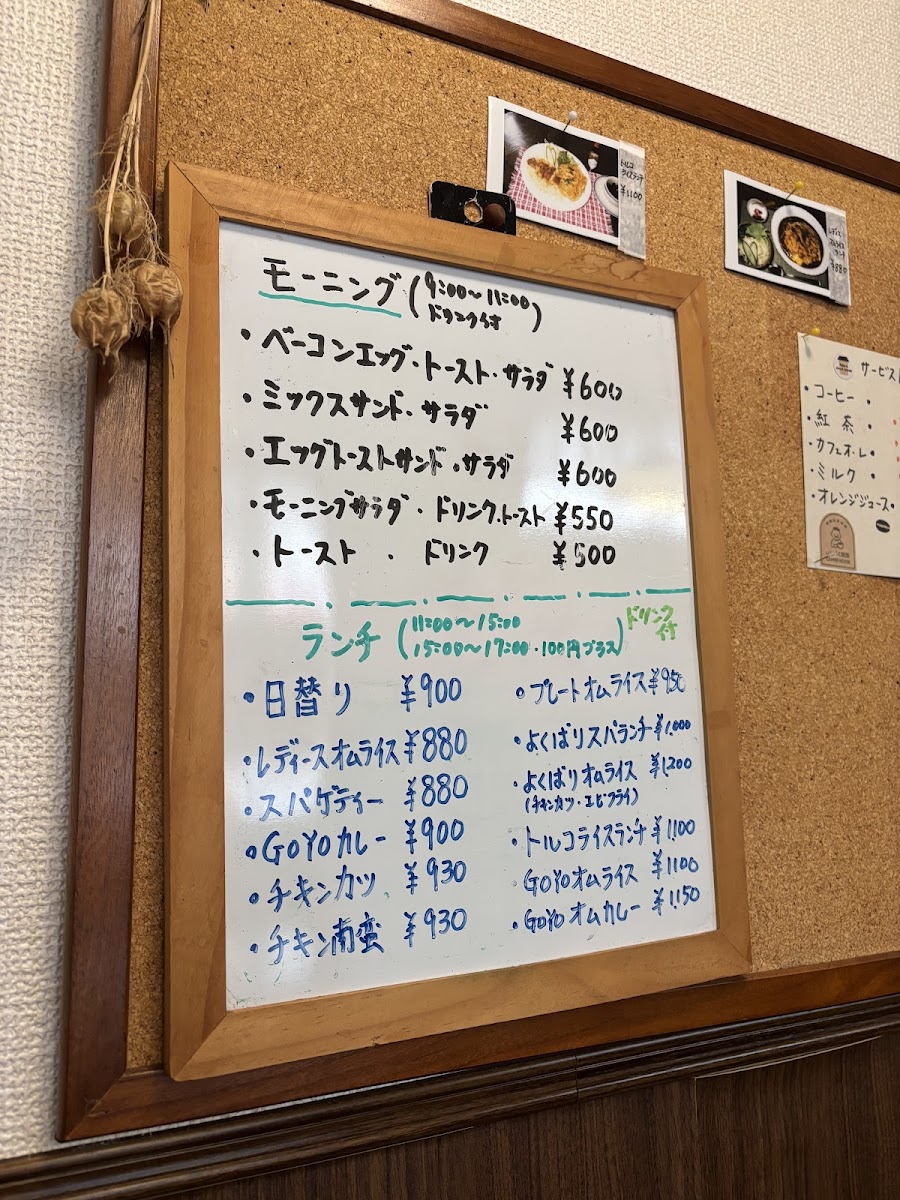 トルコ
ライスランチ
¥1100
レディース
オムライス
ランチ
¥880
モーニング (9:00〜11:00
ドリンク付)
・ベーコンエッグ・トースト・サラダ ¥600
・ミックスサンド・サラダ ¥600
・エッグトーストサンド・サラダ ¥600
・モーニングサラダ・ドリンク・トースト ¥550
・トースト・ドリンク ¥500
ランチ (11:00〜15:00
15:00〜17:00・100円プラス)
ドリンク
付
・日替り ¥900
・レディースオムライス ¥880
・スパゲティー ¥880
・GOYOカレー ¥900
・チキンカツ ¥930
・チキン南蛮 ¥930
・プレートオムライス ¥950
・よくばりスパランチ ¥1,000
・よくばりオムライス ¥1,200
(チキンカツ・エビフライ)
・トルコライスランチ ¥1,100
・GOYOオムライス ¥1100
・GOYOオムカレー ¥1,150
サービス
・コーヒー・
・紅茶・
・カフェオ・レ・
・ミルク・
・オレンジジュース・